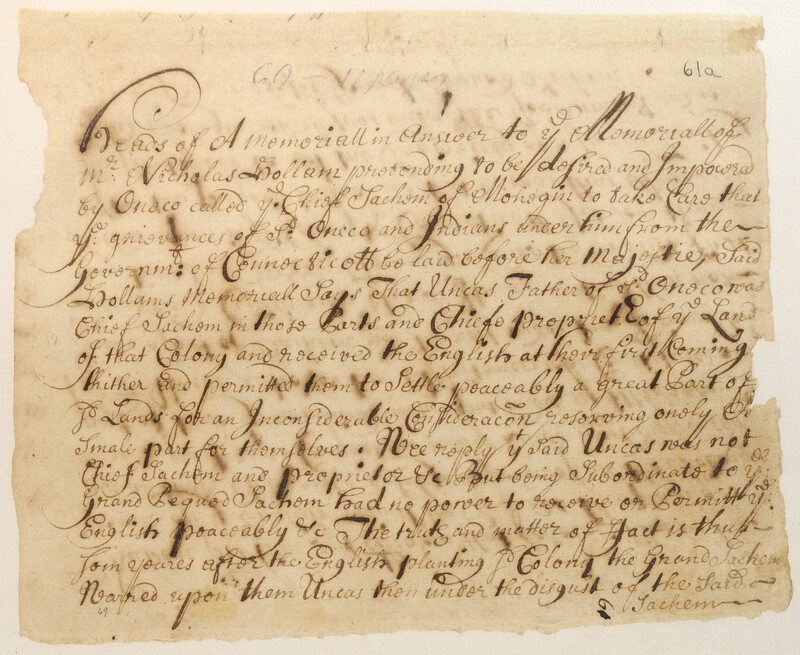 61a
Heads of A Memoriall in Answer to ye Memoriall of
mr. Nicholas Hollam pretending to be desired and Impowered
by Oneco called ye Chief Sachem of Mohegin to take Care that
ye grievances of sd. Oneco and Indians under him from the
Governmt. of Connecticott be laid before her Majestie, Said
Hollams Memoriall Says That Uncas Father of sd Oneco was
Chief Sachem in those Parts and Chiefe propriet of ye Land
of that Colony and received the English at their first Coming
thither and permitted them to Settle peaceably a great Part of
sd Lands for an Inconsiderable Consideracon reserving onely a
smale part for themselves. Wee reply yt Said Uncas was not
Chief Sachem and proprietor &c But being Subordinate to ye
Grand Pequod Sachem had no power to receive or Permitt ye
English peaceably &c The truth and matter of Fact is thus
som yeares after the English planting sd Colony the Grand Sachem
Warred upon them Uncas then under the disgust of the Said
Sachem